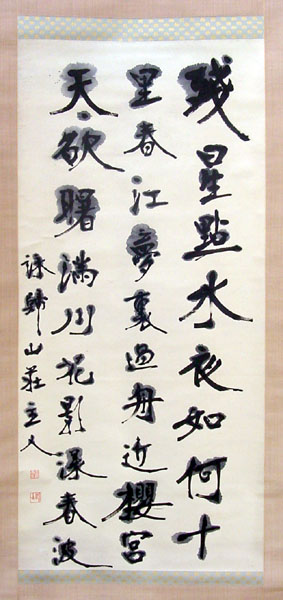 殘星點水夜如何十
里春江夢裏過舟近櫻宮
天欲曙滿川花影漾春波
詠歸山莊主人